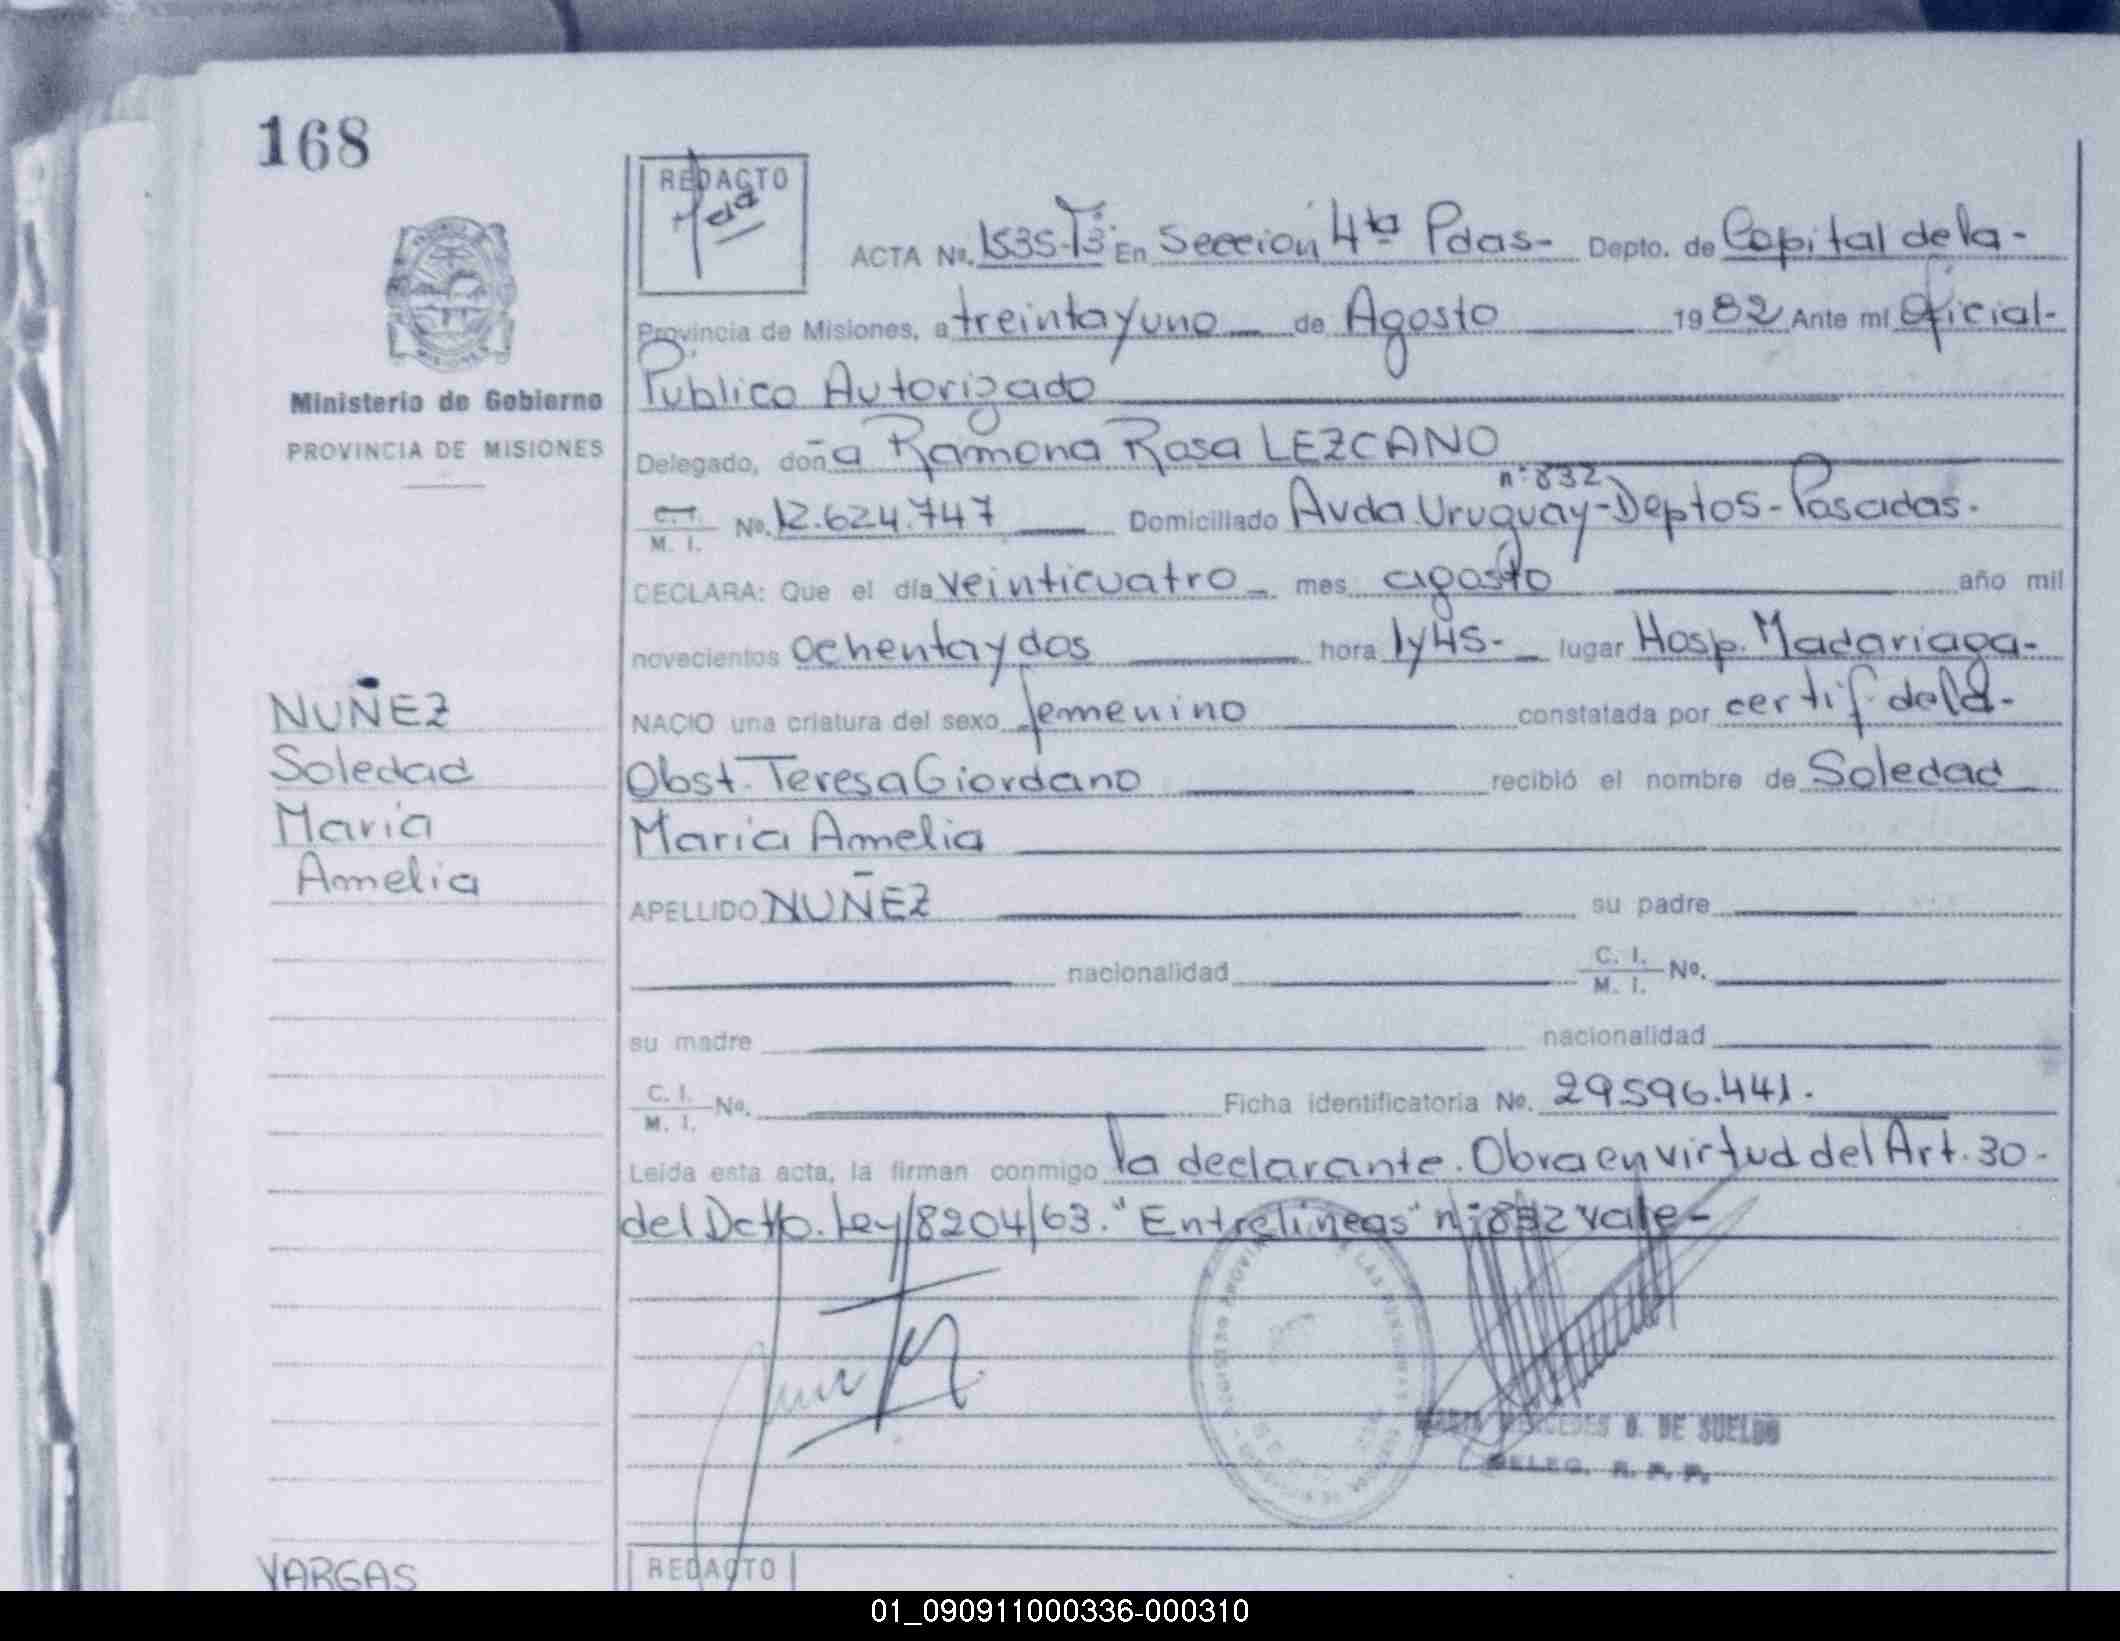 168
REDACTO
ACTA Nº. 1535-Tº3º En Sección 4ta Pdas- Depto. de Capital de la-
Provincia de Misiones, a treinta y uno de Agosto 1982 Ante mi Oficial-
Público Autorizado
Ministerio de Gobierno
PROVINCIA DE MISIONES
Delegado, doña Ramona Rosa LEZCANO
n:832
C.I. M. I. Nº. 12.624.747 Domiciliado Avda. Uruguay-Deptos-Posadas.
DECLARA: Que el día veinticuatro mes agosto año mil
novecientos ochenta y dos hora 1y45- lugar Hosp. Madariaga-
NUÑEZ
Soledad
María
Amelia
NACIO una criatura del sexo femenino constatada por certif. de la-
Obst. Teresa Giordano recibió el nombre de Soledad
María Amelia
APELLIDO NUÑEZ su padre
nacionalidad C. I. M. I. Nº.
su madre nacionalidad
C. I. M. I. Nº. Ficha identificatoria Nº. 29.596.441.
Leída esta acta, la firman conmigo la declarante. Obra en virtud del Art. 30-
del Dcto. Ley/8204/63. "Entrelineas" n:832 vale-
MERCEDES B. DE SUELDO
DELEG. R. P. P.
VARGAS
REDACTO
01_090911000336-000310